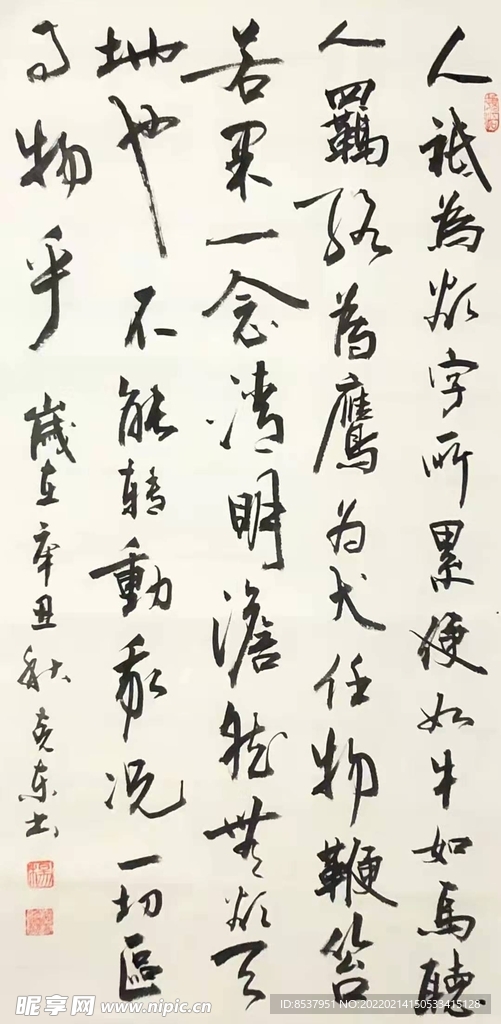 人祇為欲字所累便如牛如馬聽
人羈絡為鷹為犬任物鞭笞
若果一念清明澹然無欲天
地也不能轉動我況一切區
事物乎
歲在辛丑秋克東書
昵享网 www.nipic.cn
ID:8537951 NO:20220214150533415128